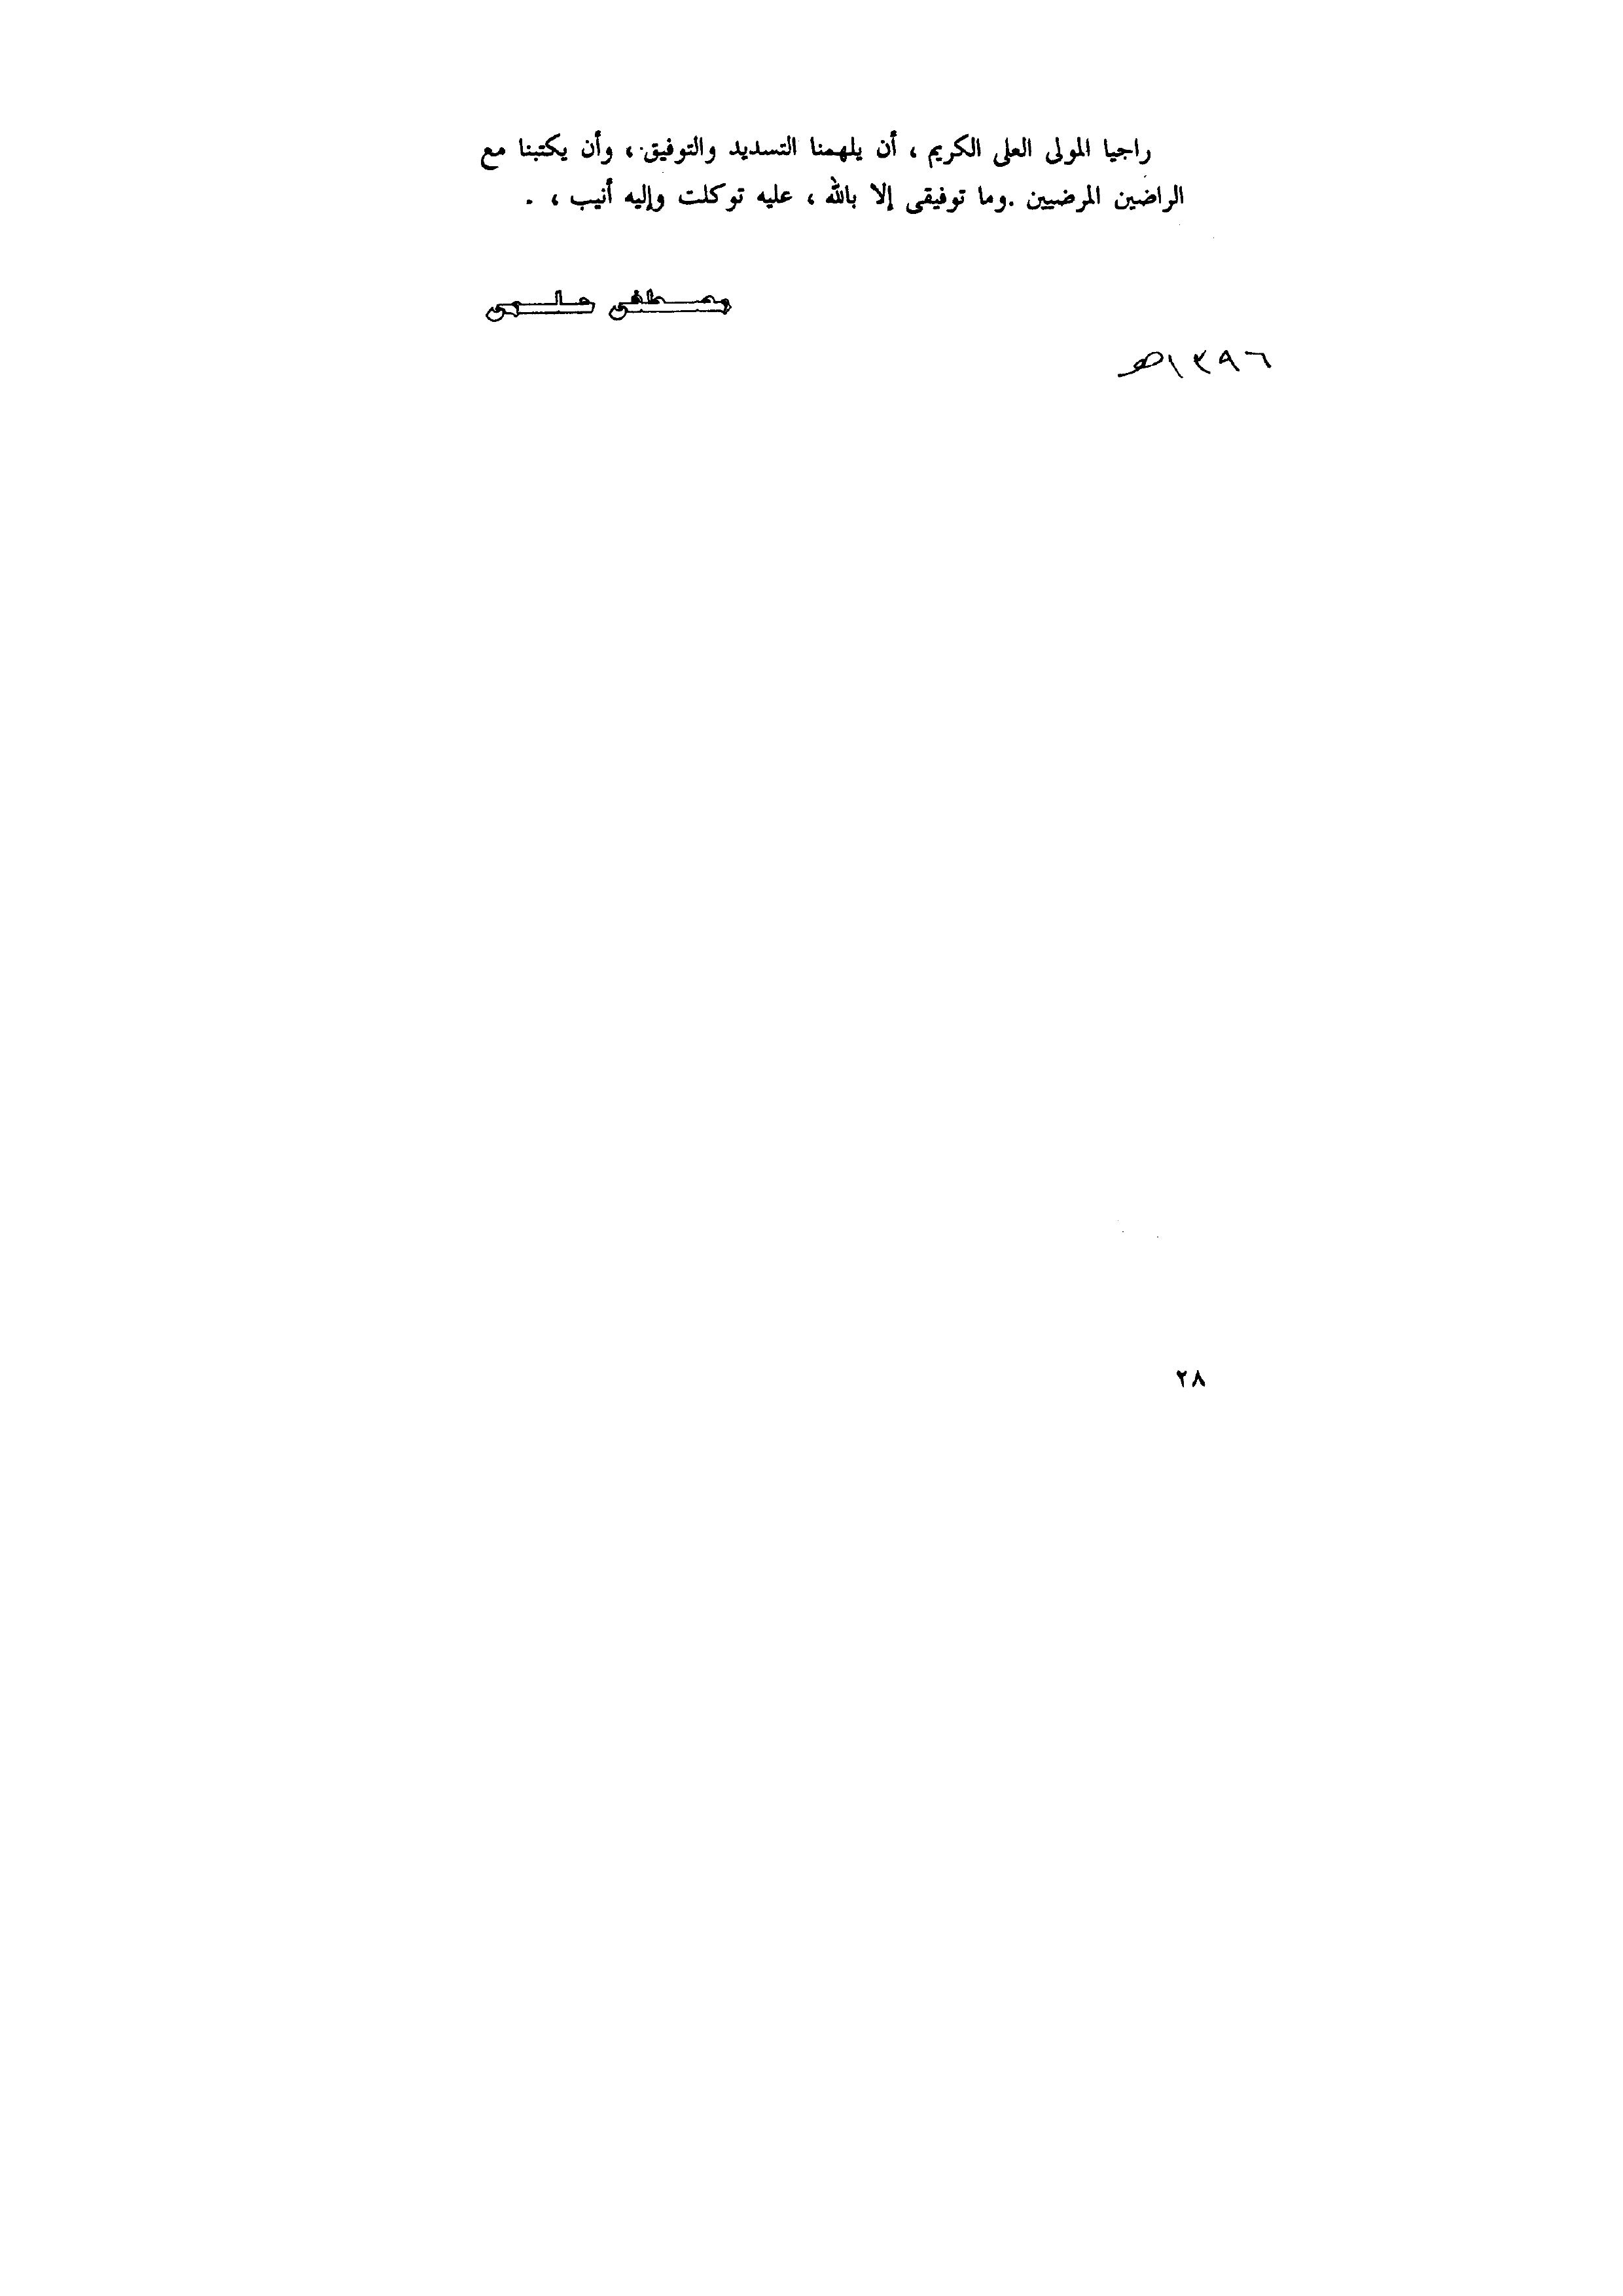 راجيا المولى العلى الكريم ، أن يلهمنا التسديد والتوفيق ، وأن يكتبنا مع
الراضين المرضيين . وما توفيقى إلا بالله ، عليه توكلت وإليه أنيب ، .
مصطفى حلمى
١٣٩٦هـ
٢٨